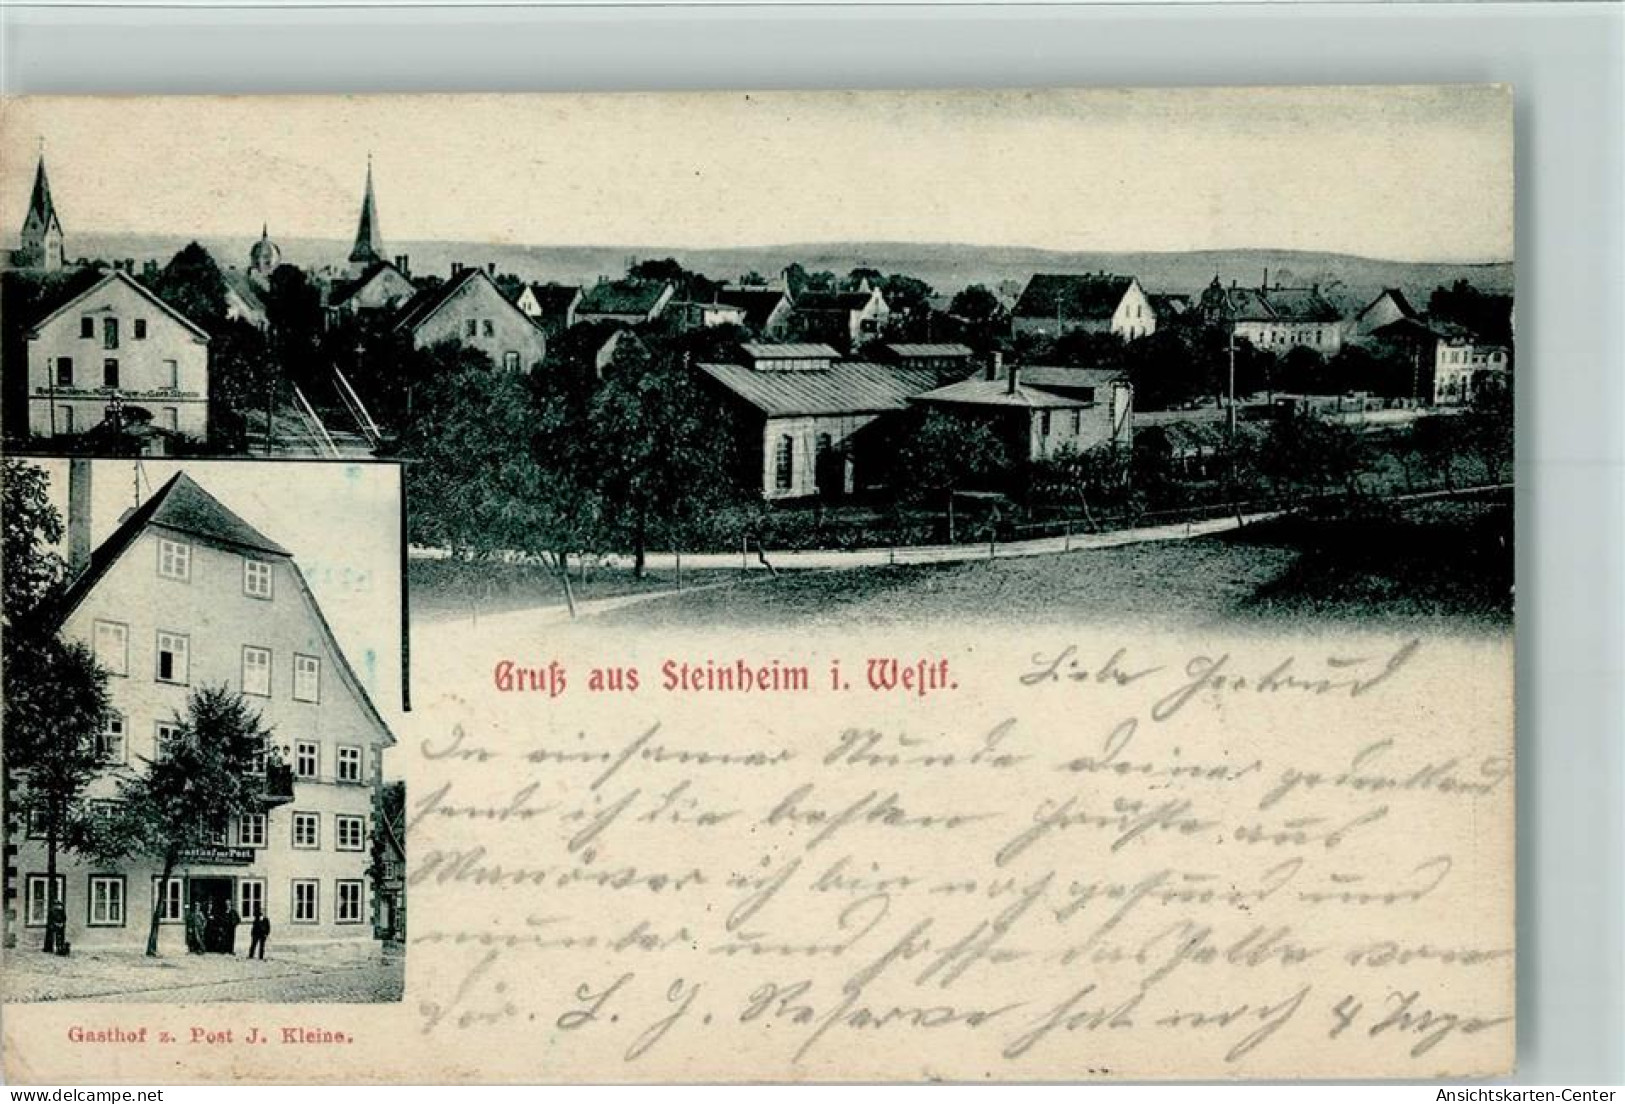 Gruß aus Steinheim i. Westf.
Liebe Gertrud
In einsamer Stunde Deiner gedenkend
sende ich die besten Grüße aus
Manöver ich bin noch gesund und
munter und hoffe dasselbe von
Dir. L. G. Reserve hat noch 4 Tage
Gasthof zur Post.
Gasthof z. Post J. Kleine.
Ansichtskarten-Center
delcampe.net